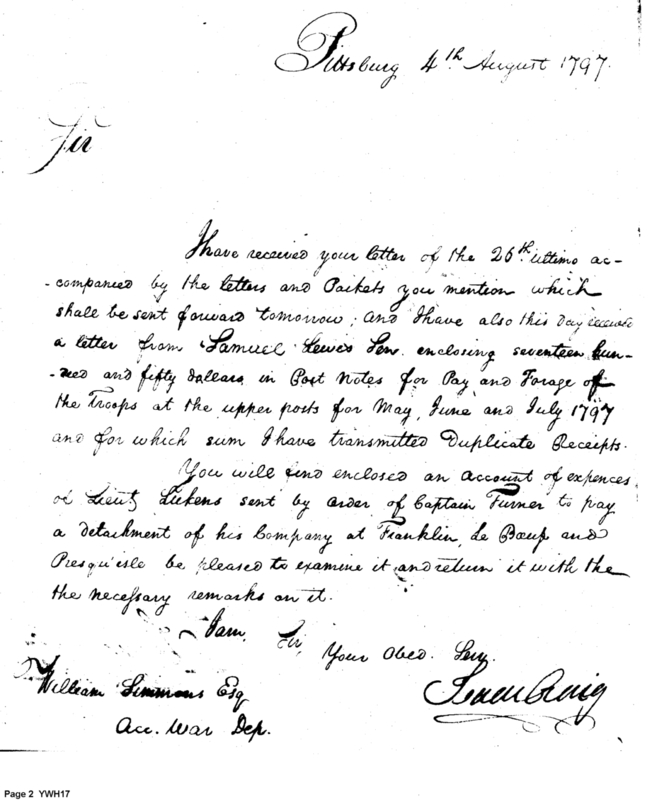 Pittsburg 4th August 1797.
Sir
I have received your letter of the 26th. ultimo ac-
-companied by the letters and Packets you mention which
shall be sent forward tomorrow; and I have also this day received
a letter from Samuel Lewis Senr. enclosing seventeen hun-
-dred and fifty dollars in Post Notes for Pay and Forage of
the Troops at the upper posts for May, June and July 1797
and for which sum I have transmitted Duplicate Receipts.
You will find enclosed an account of expences
of Lieut. Lickens sent by order of Captain Turner to pay
a detachment of his Company at Franklin, Le Bœuf and
Presqu'isle be pleased to examine it and return it with the
the necessary remarks on it.
I am, Sir,
Your Obed. Serv.
Isaac Craig
William Simmons Esq
Acc. War Dep.
Page 2 YWH17